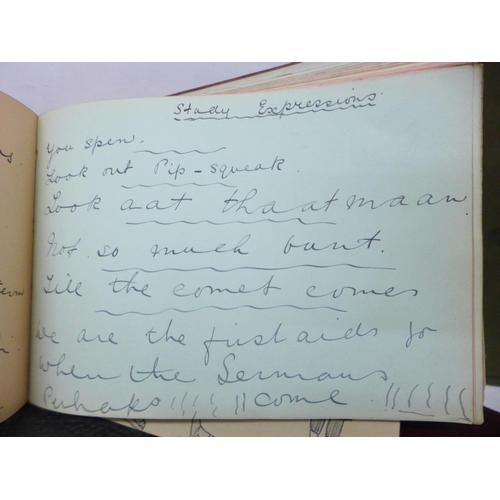 Study Expressions.
You spen.
Look out Pip-squeak.
Look aat thaat maan
Not so much bunt.
Till the comet comes
We are the first aids for
when the Germans
Perhaps !!!! !! come !!!!!!